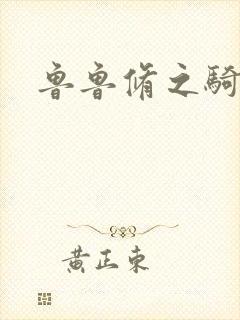 魯魯脩之騎
黃正東